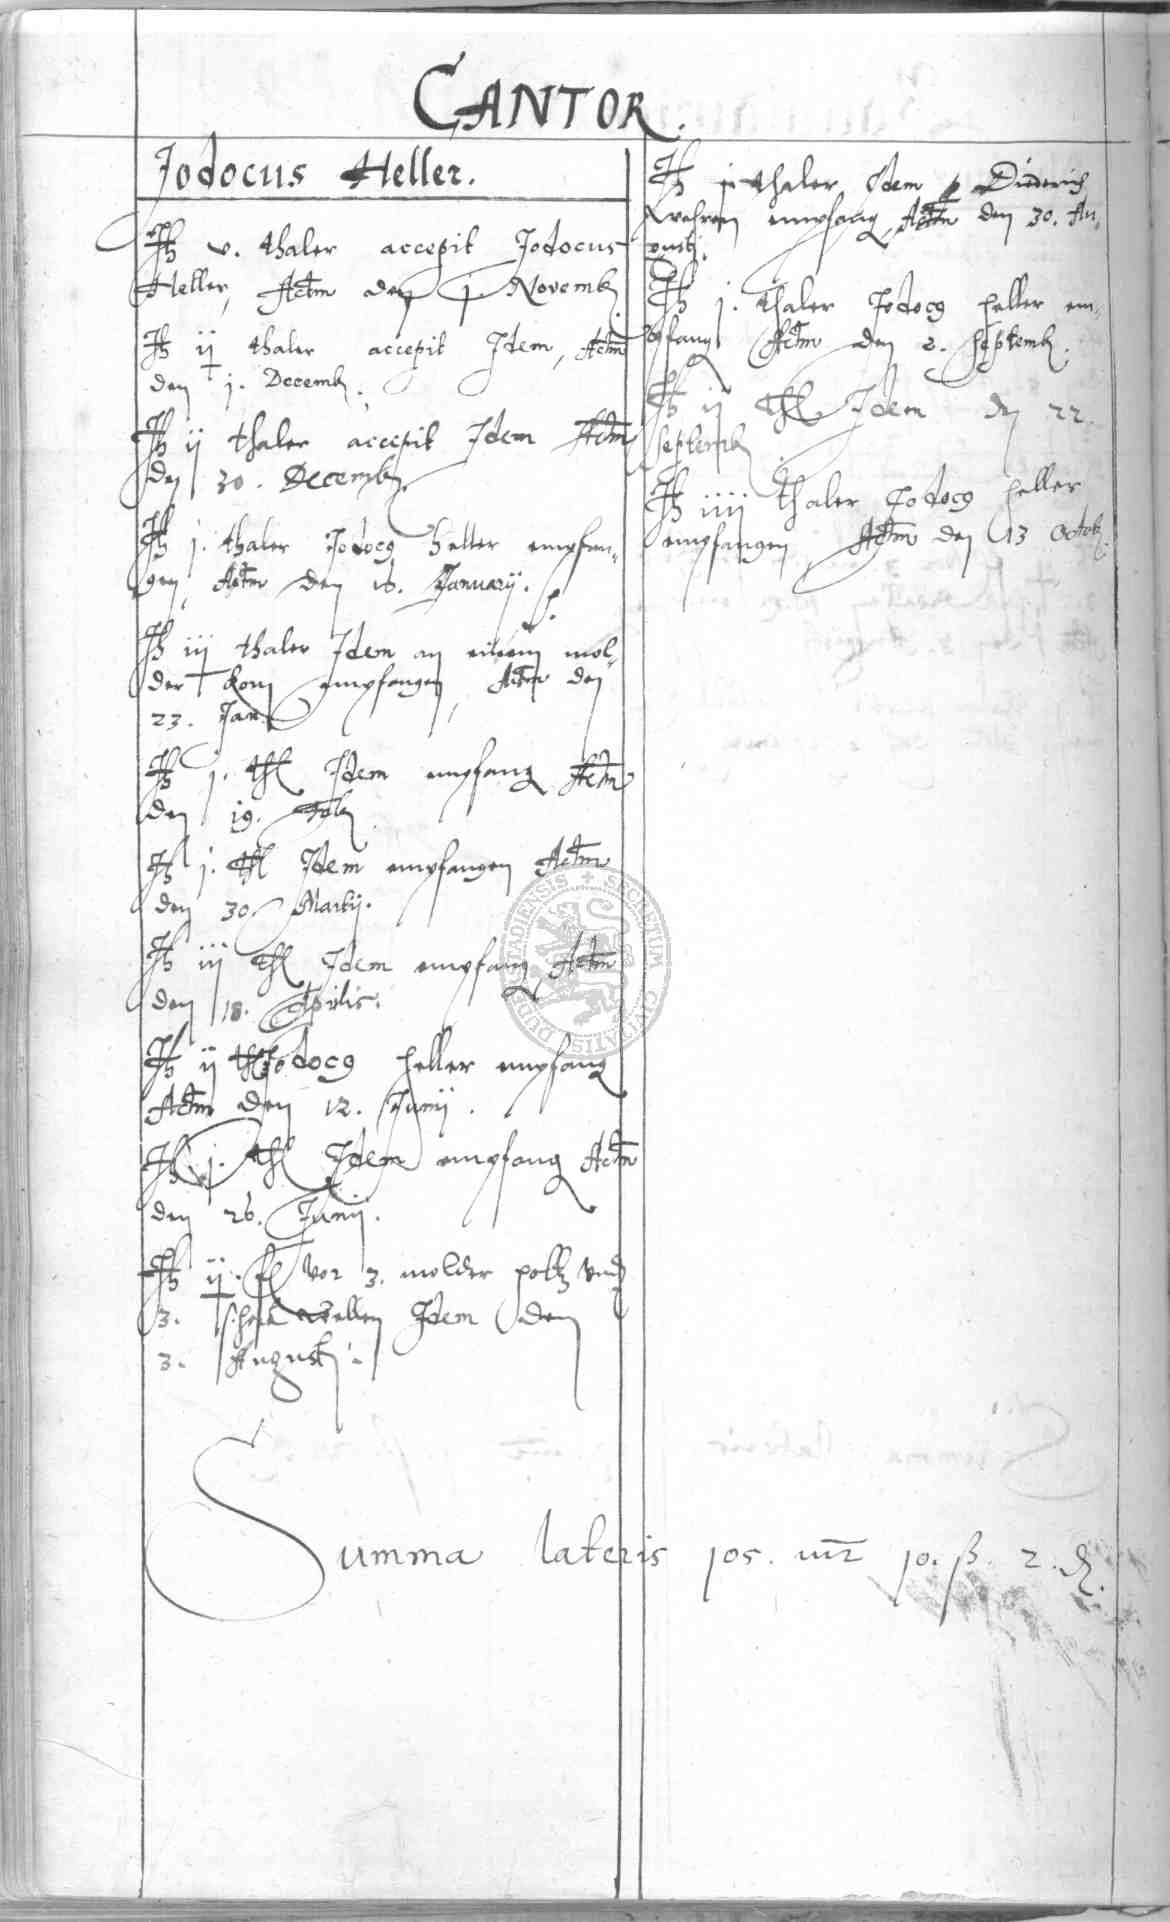 CANTOR.
Jodocus Heller.
It v. thaler accepit Jodocus
Heller, Actm den j Novemb.
It ij thaler accepit Idem, Actm
den 1. Decemb.
It ij thaler accepit Idem Actm
den 30. Decemb.
It j. thaler Jodocg heller empfan-
gen, Actm den 16. Januarij.
It iij thaler Idem an einem mol-
der korn empfangen, Actm den
23. Jan.
It j. thl Idem empfang Actm
den 19. Feb.
It j. thl Idem empfangen Actm
den 30. Martij.
It iij thl Idem empfang Actm
den 18. Aprilis.
It ij thl Jodocg heller empfang
Actm den 12. Junij.
It j. thl Idem empfang Actm
den 26. Junij.
It ij. fl vor 3. molder vnd
3. Idem den
3. Augusti.
It thaler Idem Diderich
empfang Actm den 30. Au-
gusti.
It j. thaler Jodocg heller em-
pfang Actm den 2. Septemb.
It ij thl Idem den 22.
Septemb.
It iiij thaler Jodocg heller
empfangen Actm den 13 Octob.
Summa lateris 105. mr 10. ß. 2. d.
SECRETUM CIVITATIS DUDERSTADIENSIS